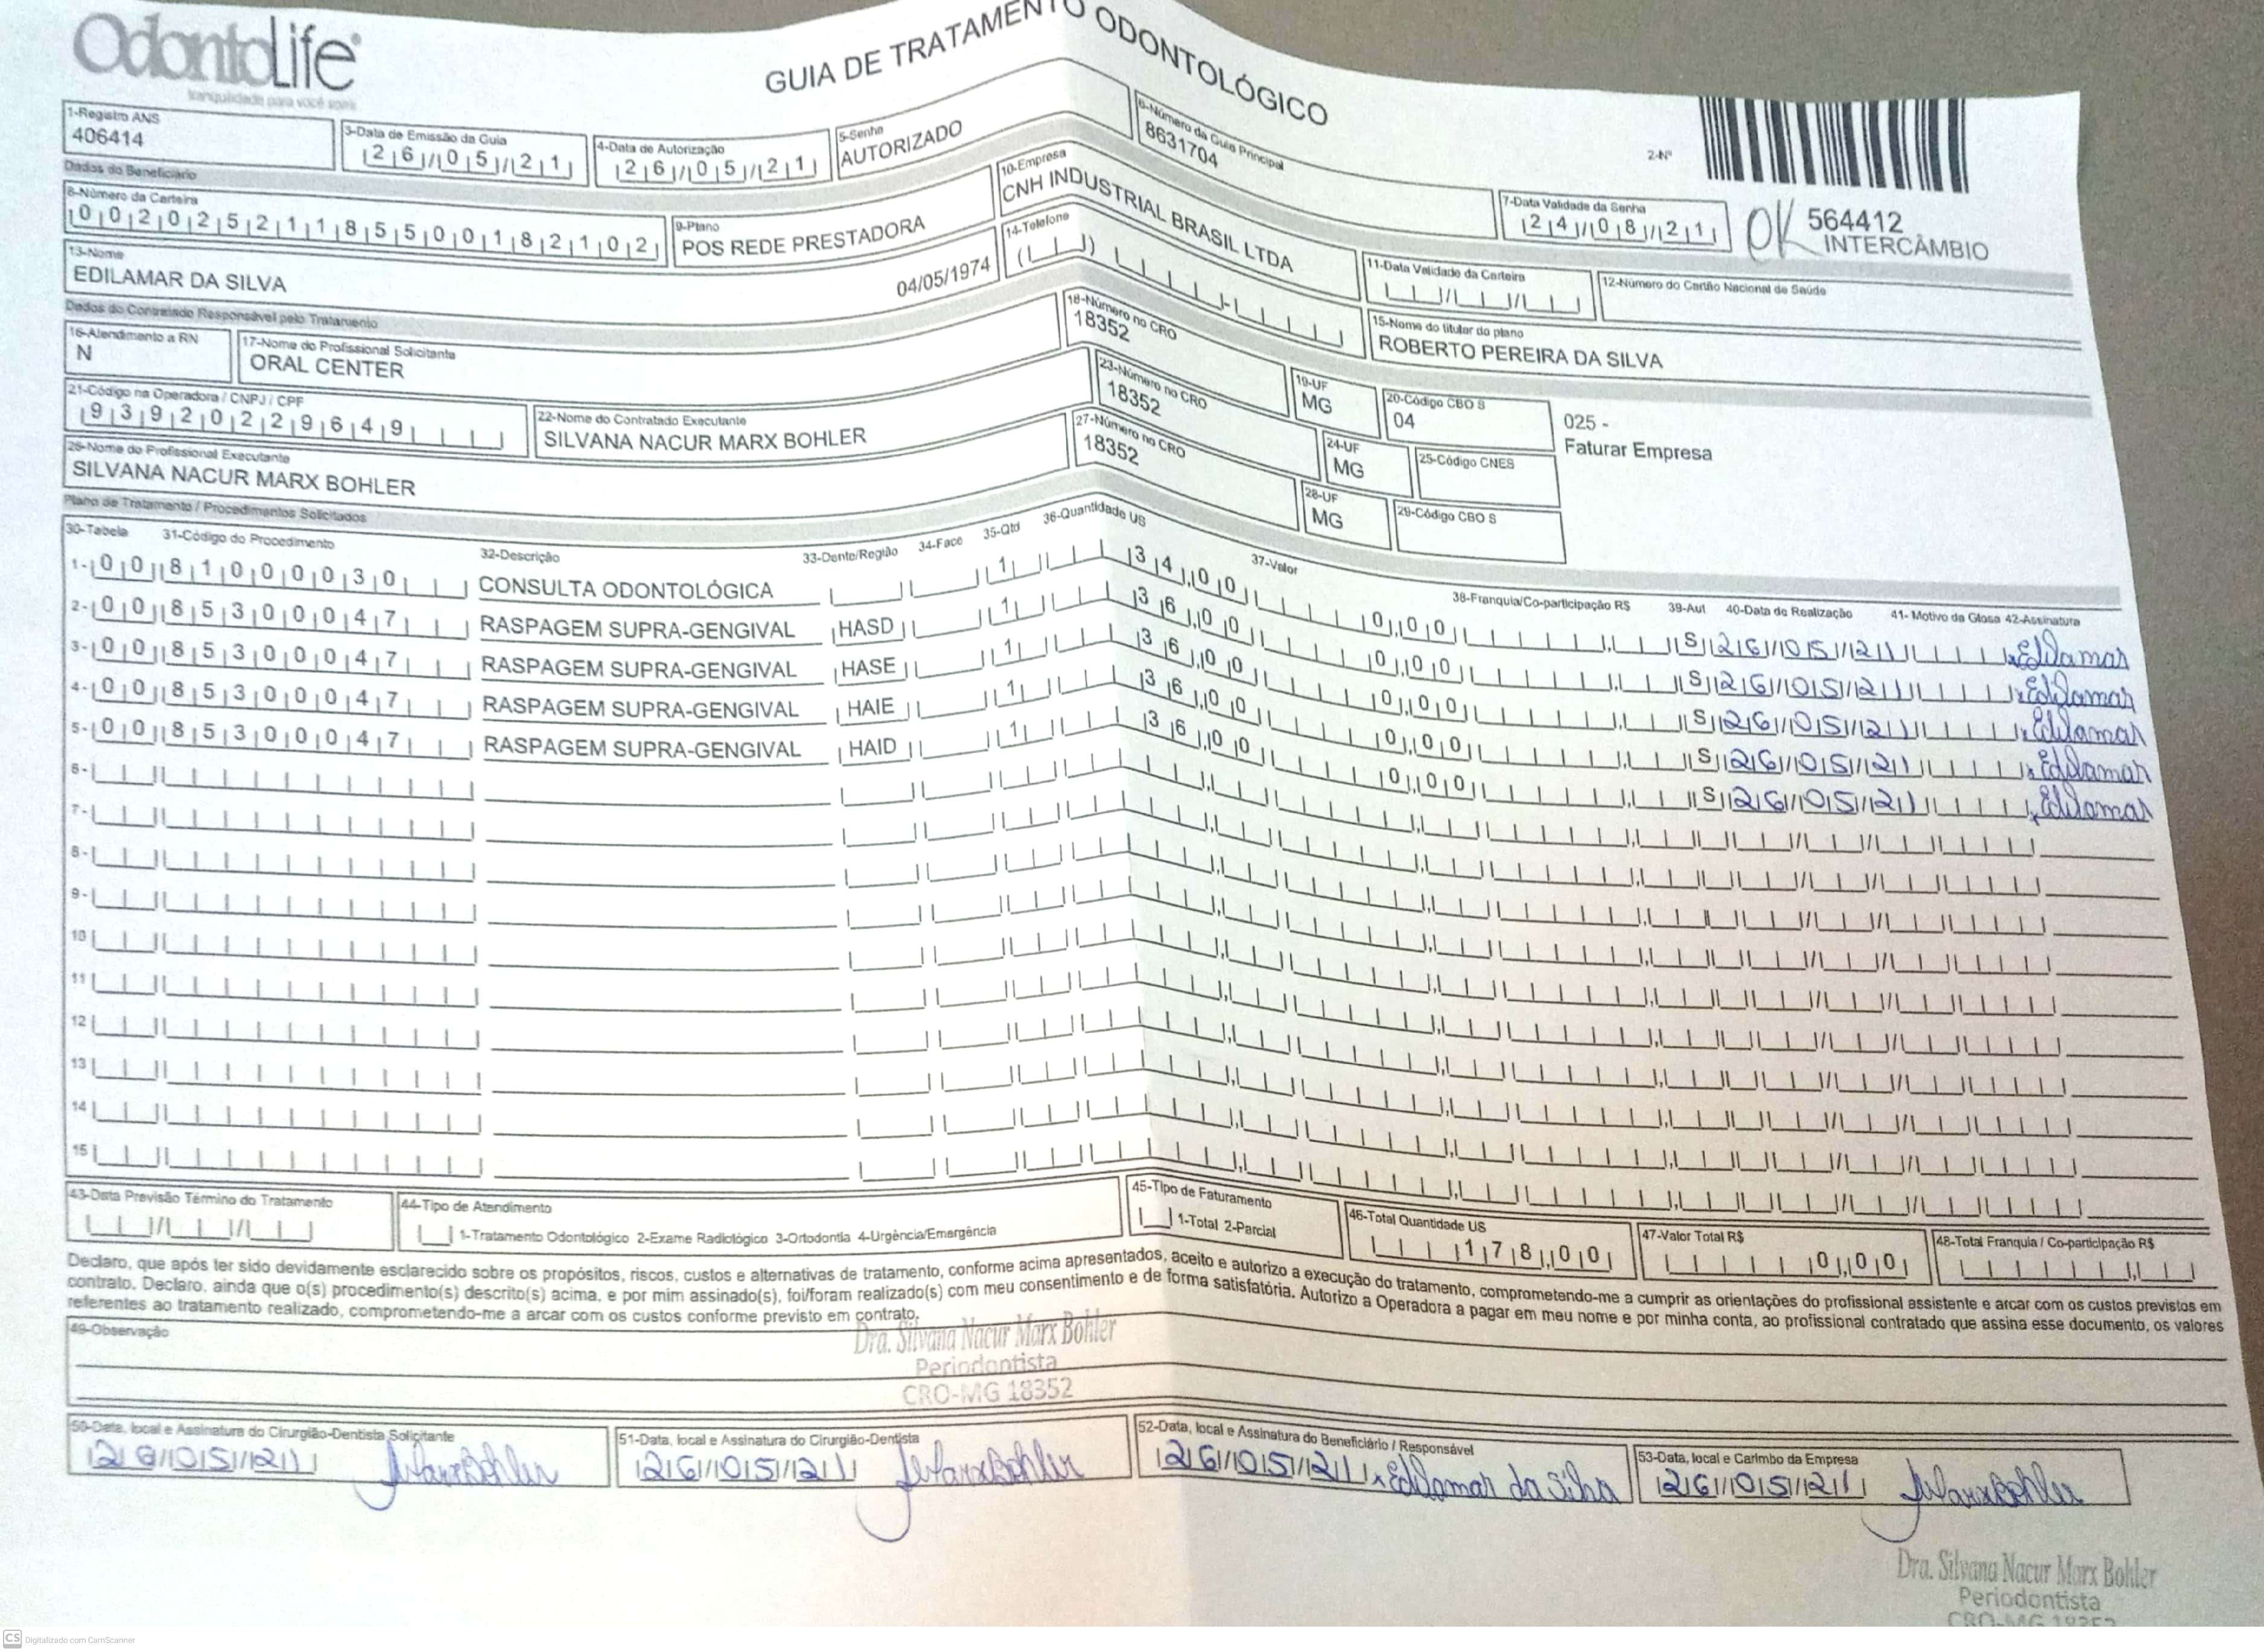 OdontoLife®
tranquilidade para você sorrir
GUIA DE TRATAMENTO ODONTOLÓGICO
2-Nº
564412
INTERCÂMBIO
OK
1-Registro ANS
406414
3-Data de Emissão da Guia
26/05/21
4-Data de Autorização
26/05/21
5-Senha
AUTORIZADO
6-Número da Guia Principal
8631704
7-Data Validade da Senha
24/08/21
Dados do Beneficiário
8-Número da Carteira
00202521185500182102
9-Plano
POS REDE PRESTADORA
10-Empresa
CNH INDUSTRIAL BRASIL LTDA
11-Data Validade da Carteira
12-Número do Cartão Nacional de Saúde
13-Nome
EDILAMAR DA SILVA
04/05/1974
14-Telefone
15-Nome do titular do plano
ROBERTO PEREIRA DA SILVA
Dados do Contratado Responsável pelo Tratamento
16-Atendimento a RN
N
17-Nome do Profissional Solicitante
ORAL CENTER
18-Número no CRO
18352
19-UF
MG
20-Código CBO S
04
025 -
Faturar Empresa
21-Código na Operadora / CNPJ / CPF
93920229649
22-Nome do Contratado Executante
SILVANA NACUR MARX BOHLER
23-Número no CRO
18352
24-UF
MG
25-Código CNES
26-Nome do Profissional Executante
SILVANA NACUR MARX BOHLER
27-Número no CRO
18352
28-UF
MG
29-Código CBO S
Plano de Tratamento / Procedimentos Solicitados
30-Tabela 31-Código do Procedimento 32-Descrição 33-Dente/Região 34-Face 35-Qtd 36-Quantidade US 37-Valor 38-Franquia/Co-participação R$ 39-Aut 40-Data de Realização 41- Motivo da Glosa 42-Assinatura
1- 00 81000030 CONSULTA ODONTOLÓGICA 1 34,00 0,00 S 26/05/21 Edilamar
2- 00 85300047 RASPAGEM SUPRA-GENGIVAL HASD 1 36,00 0,00 S 26/05/21 Edilamar
3- 00 85300047 RASPAGEM SUPRA-GENGIVAL HASE 1 36,00 0,00 S 26/05/21 Edilamar
4- 00 85300047 RASPAGEM SUPRA-GENGIVAL HAIE 1 36,00 0,00 S 26/05/21 Edilamar
5- 00 85300047 RASPAGEM SUPRA-GENGIVAL HAID 1 36,00 0,00 S 26/05/21 Edilamar
6-
7-
8-
9-
10
11
12
13
14
15
43-Data Previsão Término do Tratamento
44-Tipo de Atendimento
1-Tratamento Odontológico 2-Exame Radiológico 3-Ortodontia 4-Urgência/Emergência
45-Tipo de Faturamento
1-Total 2-Parcial
46-Total Quantidade US
178,00
47-Valor Total R$
0,00
48-Total Franquia / Co-participação R$
Declaro, que após ter sido devidamente esclarecido sobre os propósitos, riscos, custos e alternativas de tratamento, conforme acima apresentados, aceito e autorizo a execução do tratamento, comprometendo-me a cumprir as orientações do profissional assistente e arcar com os custos previstos em
contrato. Declaro, ainda que o(s) procedimento(s) descrito(s) acima, e por mim assinado(s), foi/foram realizado(s) com meu consentimento e de forma satisfatória. Autorizo a Operadora a pagar em meu nome e por minha conta, ao profissional contratado que assina esse documento, os valores
referentes ao tratamento realizado, comprometendo-me a arcar com os custos conforme previsto em contrato.
49-Observação
Dra. Silvana Nacur Marx Bohler
Periodontista
CRO-MG 18352
50-Data, local e Assinatura do Cirurgião-Dentista Solicitante
26/05/21
51-Data, local e Assinatura do Cirurgião-Dentista
26/05/21
52-Data, local e Assinatura do Beneficiário / Responsável
26/05/21 Edilamar da Silva
53-Data, local e Carimbo da Empresa
26/05/21
Dra. Silvana Nacur Marx Bohler
Periodontista
CRO-MG 18352
CS Digitalizado com CamScanner